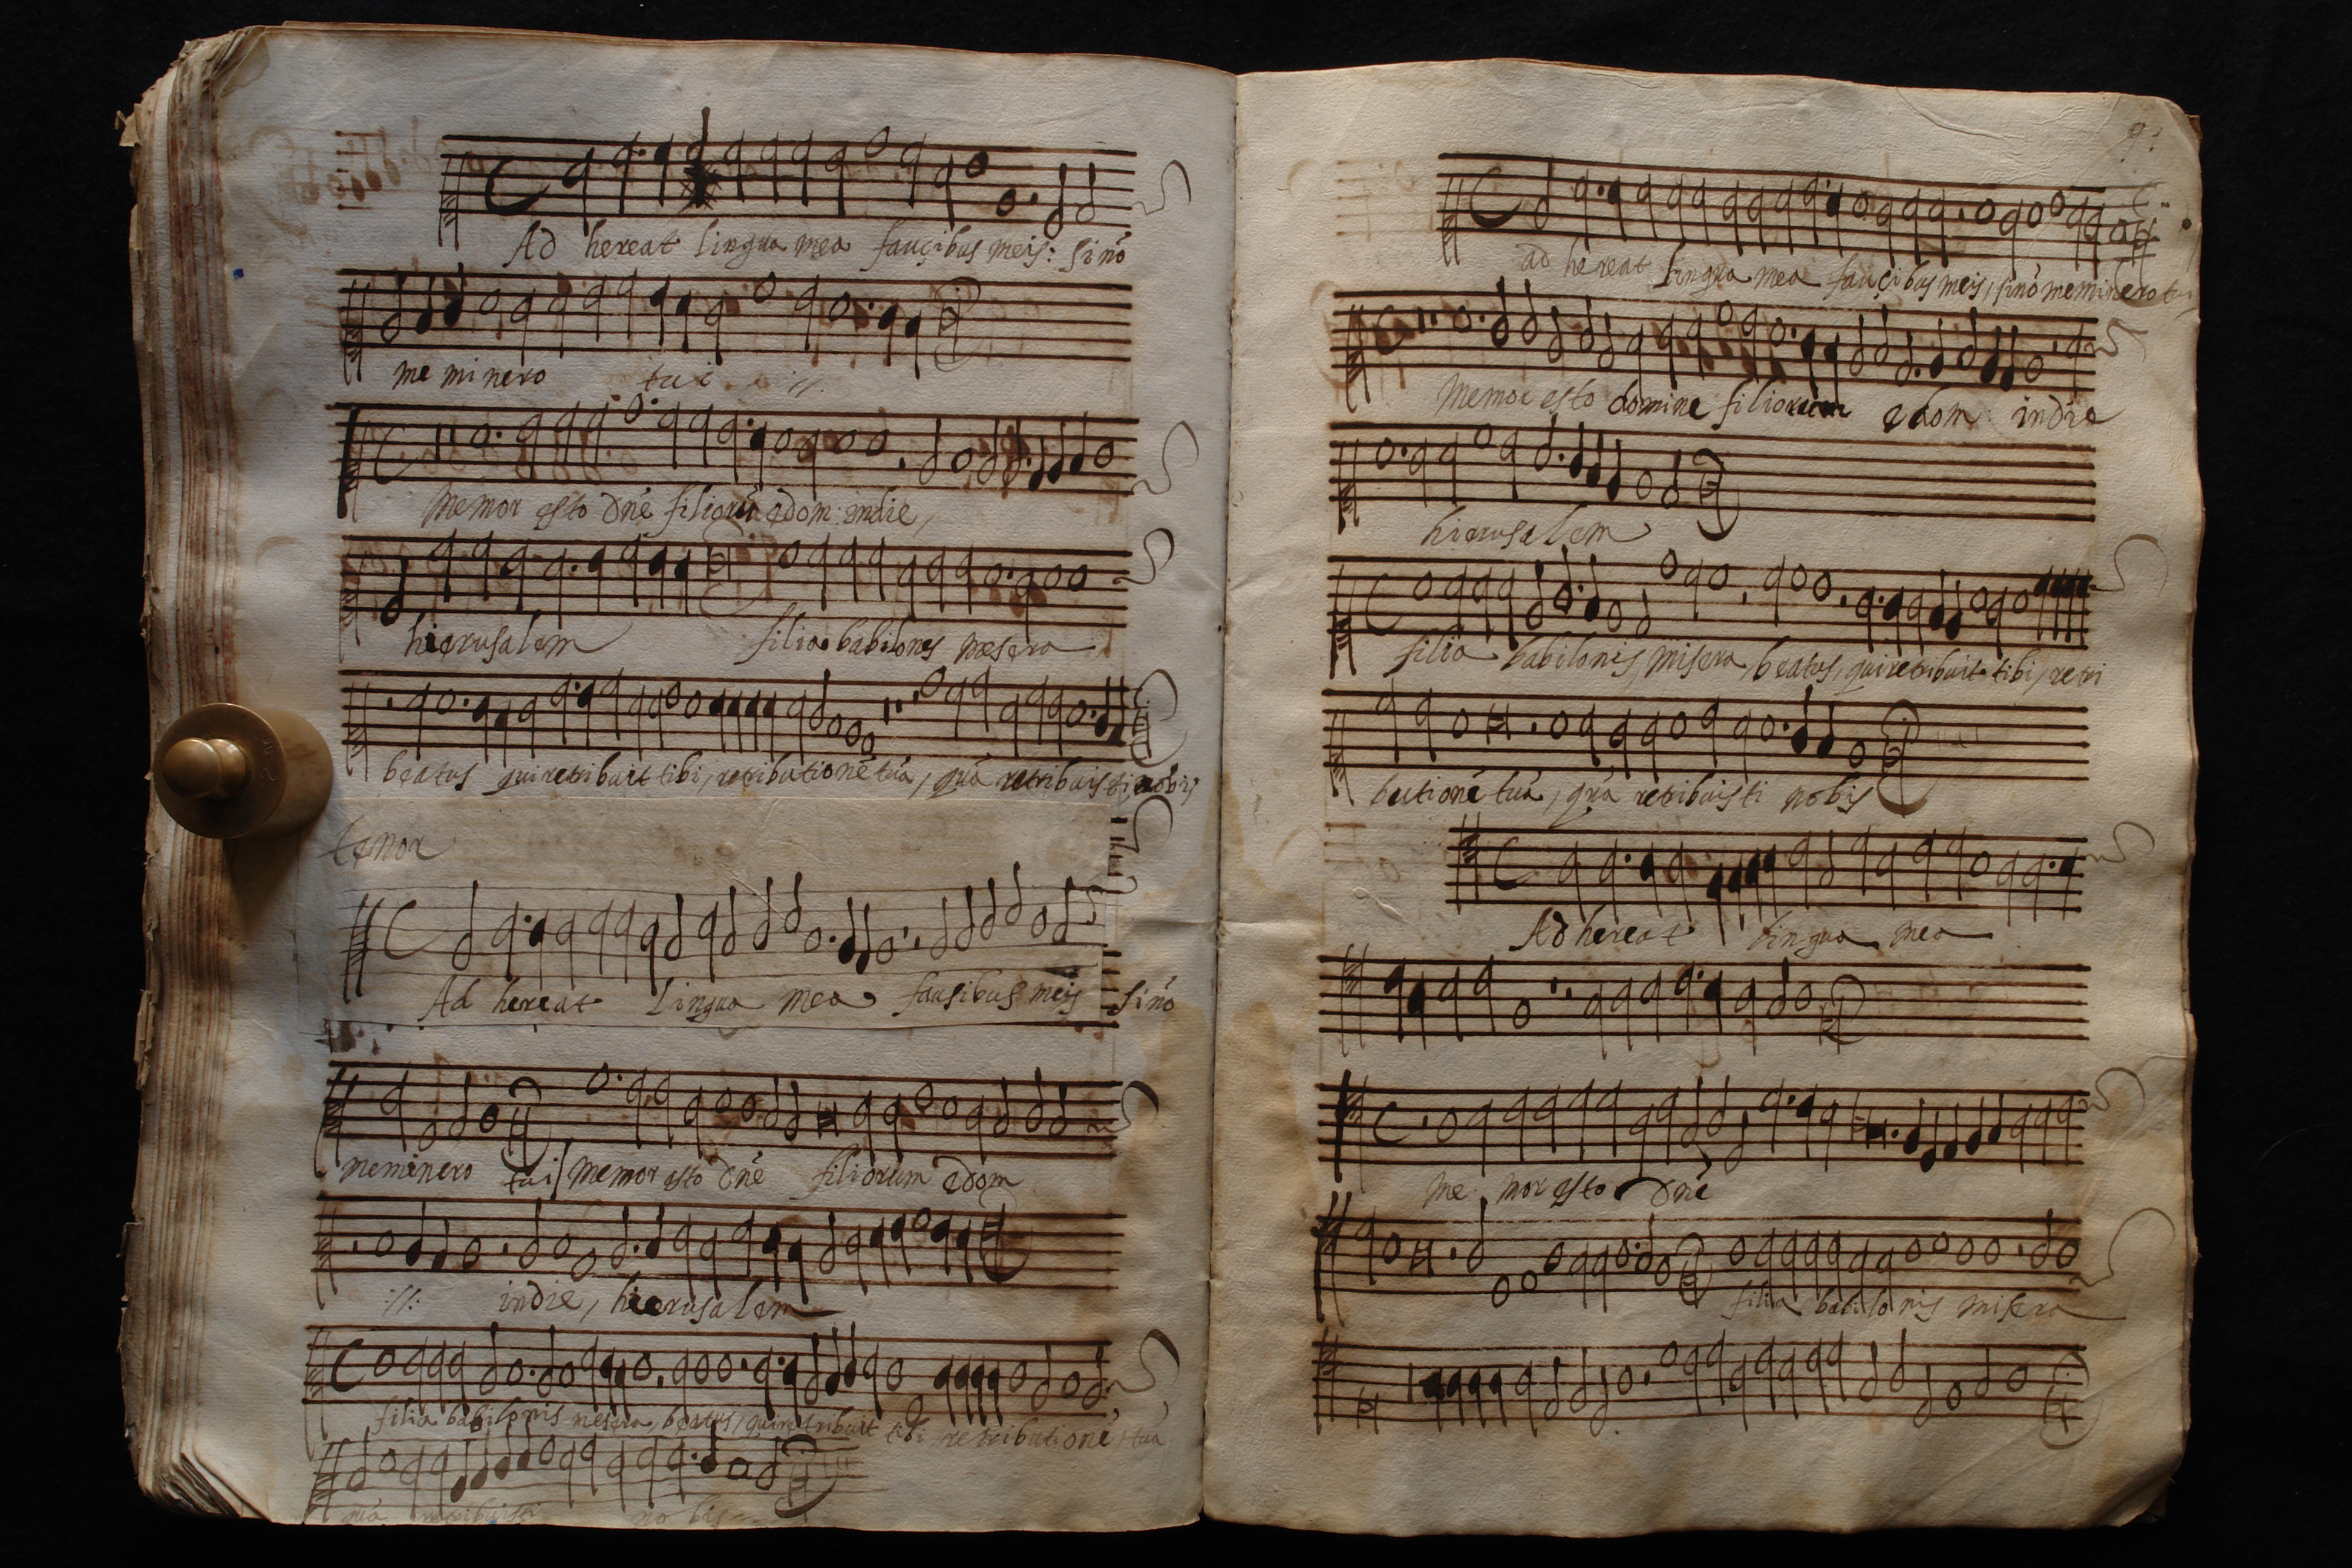 Ad hereat lingua mea fauçibus meis: si nõ
me minero tui :/:
Memor esto dñe filiorũ edom indie,
hierusalem filia babilonis mesera
beatus qui retribuit tibi, retributionẽ tuã, quã retribuisti nobis
tenor
Ad hereat Lingua mea fausibus meis si nõ
meminero tui memor esto dñe filiorum edom
:/: indie, hierusalem
filia babilonis mesera, beatus, qui retribuit tibi retributionẽ, tua
quã retribuisti nobis
ad hereat lingua mea fauçibus meis, sinõ meminero tui
Memor esto domine filiorum edom indie
hierusalem
filia babilonis, misera, beatus, qui retribuit tibi, retri
butionẽ tuã, quã retribuisti nobis
Ad hereat lingua mea
Me mor esto dñe
filia babilonis misera